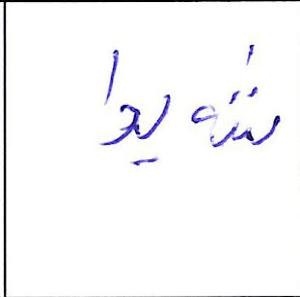 شەیدا